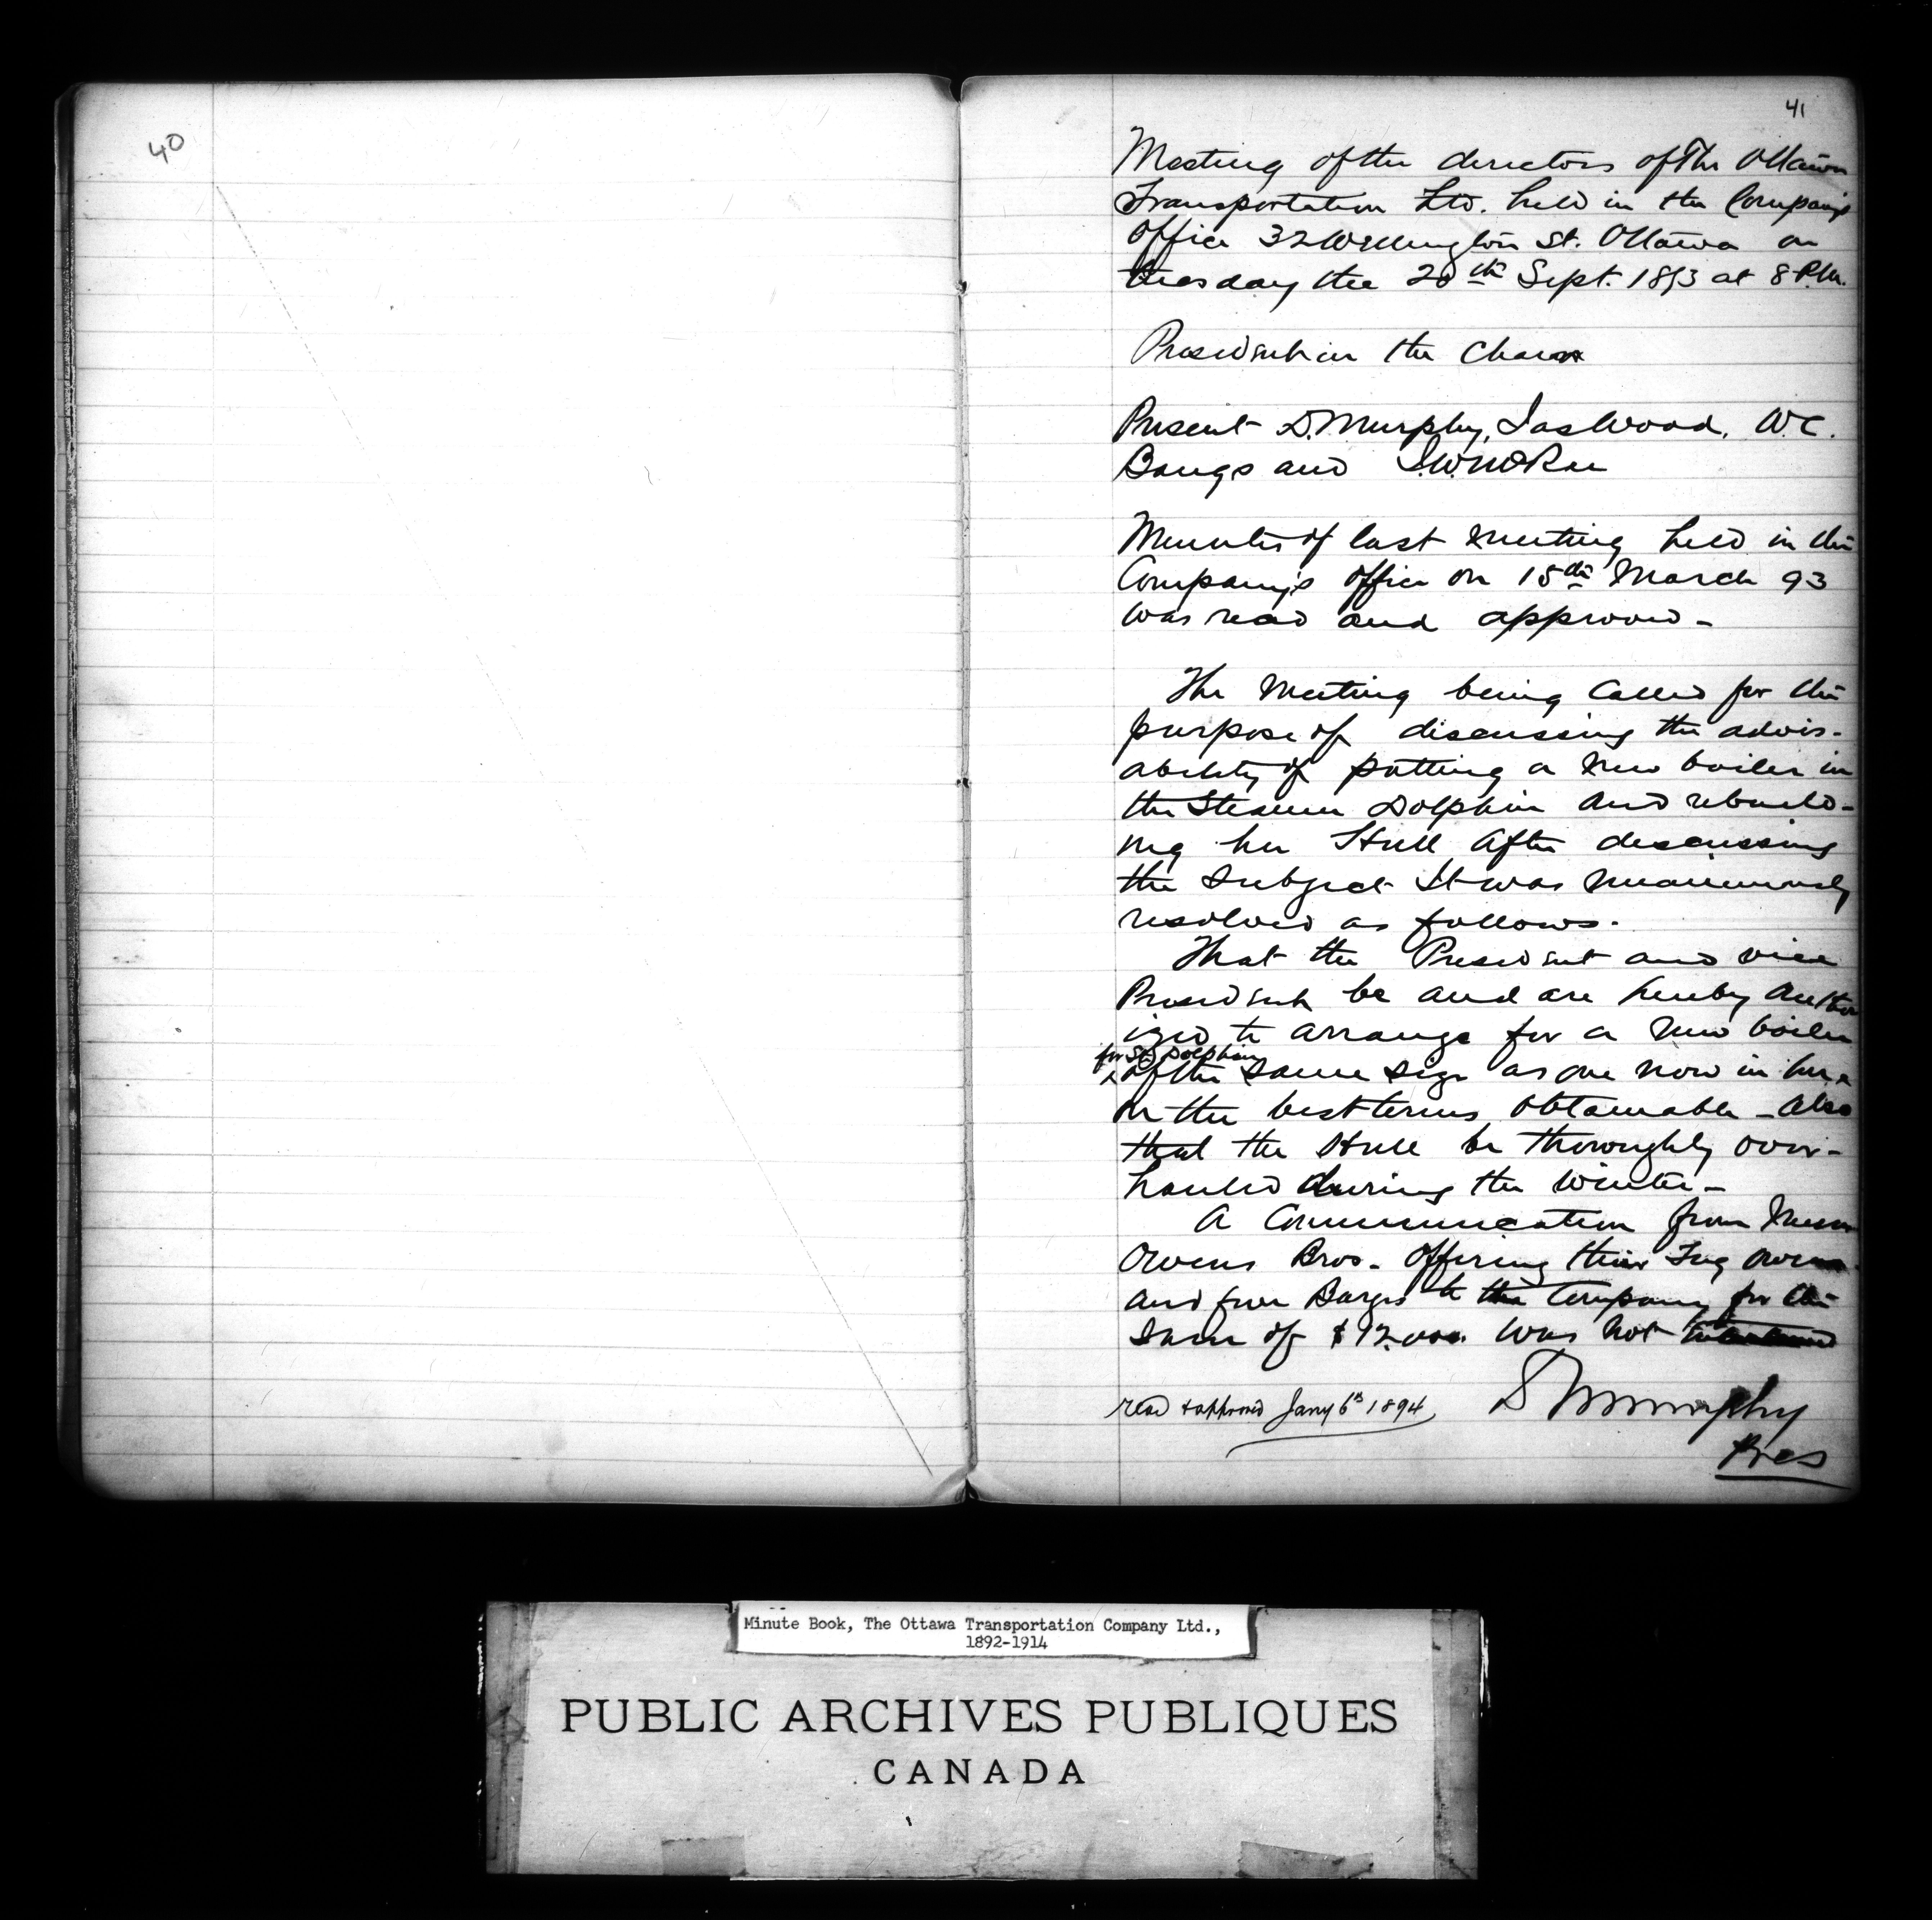 40
41
Meeting of the directors of The Ottawa
Transportation Ltd. held in the Companys
office 32 Wellington St. Ottawa on
tuesday the 20th Sept. 1893 at 8 P.M.
President in the Chair
Present D. Murphy, Jas Wood, W.C.
Bangs and J.W. McRae
Minutes of last meeting held in the
Company's office on 15th March 93
was read and approved -
The meeting being called for the
purpose of discussing the advis-
ability of putting a new boiler in
the Steamer Dolphin and rebuild-
ing her Hull After discussing
the subject It was unanimously
resolved as follows.
That the President and vice
President be and are hereby author
ized to arrange for a new boiler
for Str Dolphin
of the same size as one now in her
on the best terms obtainable - also
that the Hull be thoroughly over-
hauled during the winter -
A Communication from Messrs
Owens Bros. Offering their Tug Owens
and five Barges to the Company for the
sum of $12.000. was not entertained
read & approved Jany 6th 1894
D Murphy
Pres
Minute Book, The Ottawa Transportation Company Ltd.,
1892-1914
PUBLIC ARCHIVES PUBLIQUES
CANADA